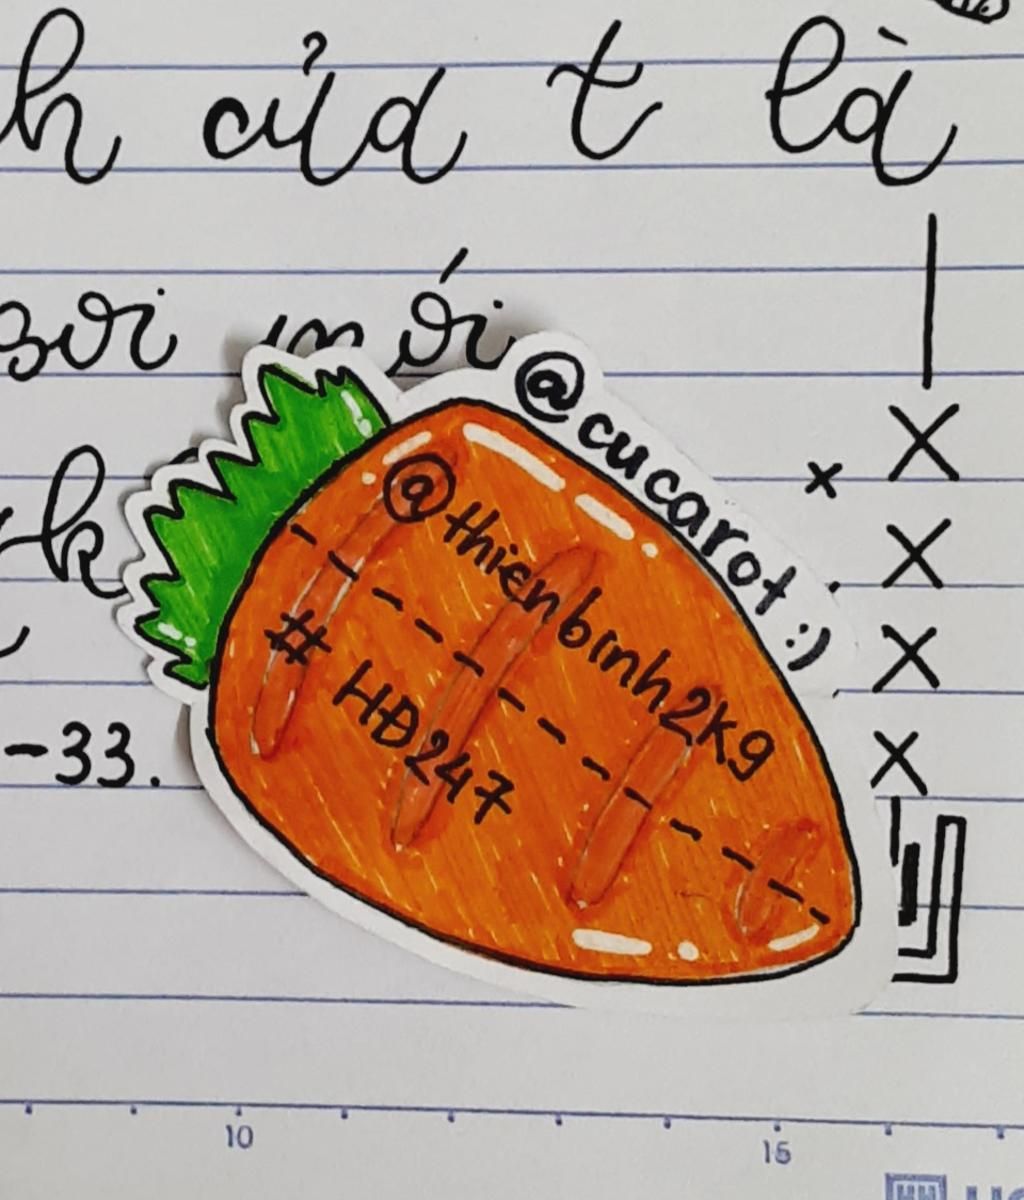 h của t là
sơi mới
-33.
@cucarot :)
@thienbinh2k9
# HĐ247
10
15